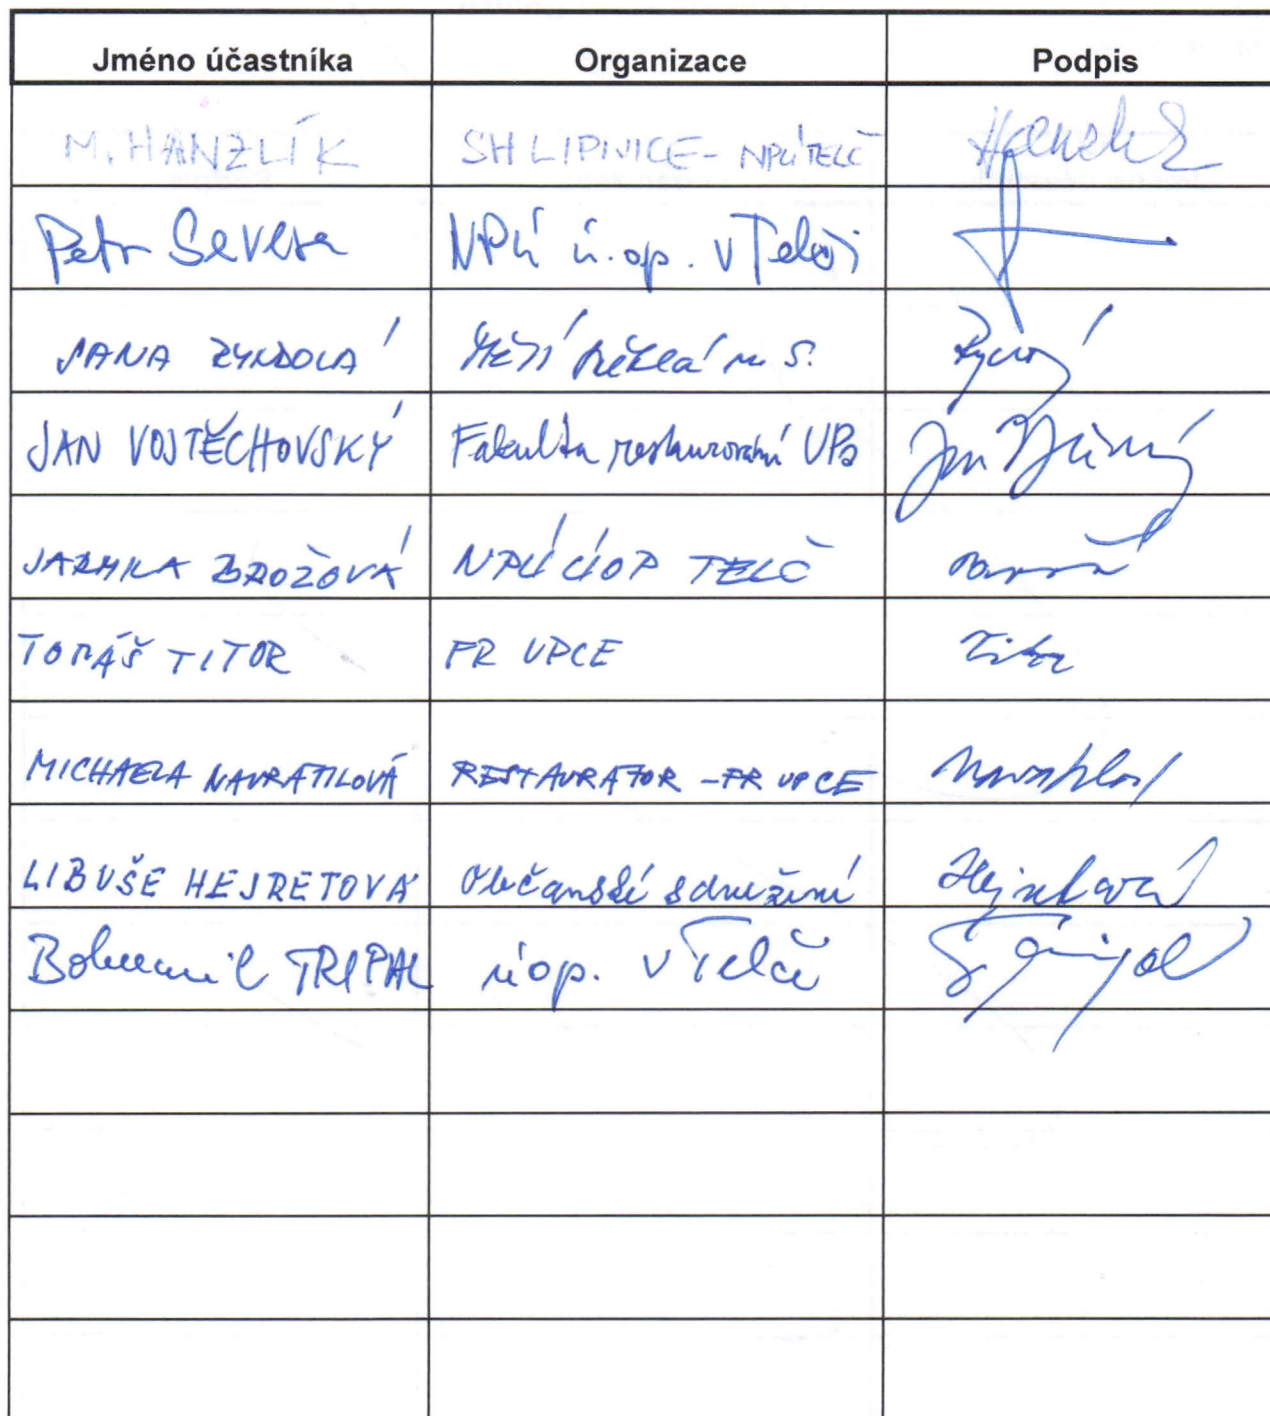 Jméno účastníka Organizace Podpis
M. HANZLÍK SH LIPNICE - NPÚ TELČ
Petr Severa NPÚ ú.op. v Telči
JANA
JAN VOJTĚCHOVSKÝ Fakulta restaurování UPa
JARMILA BROŽOVÁ NPÚ ÚOP TELČ
TOMÁŠ TITOR FR UPCE
MICHAELA NAVRÁTILOVÁ RESTAURÁTOR - FR UPCE
LIBUŠE HEJRETOVÁ Občanské sdružení Hejretová
Bohumil TRIPAL úop. v Telči